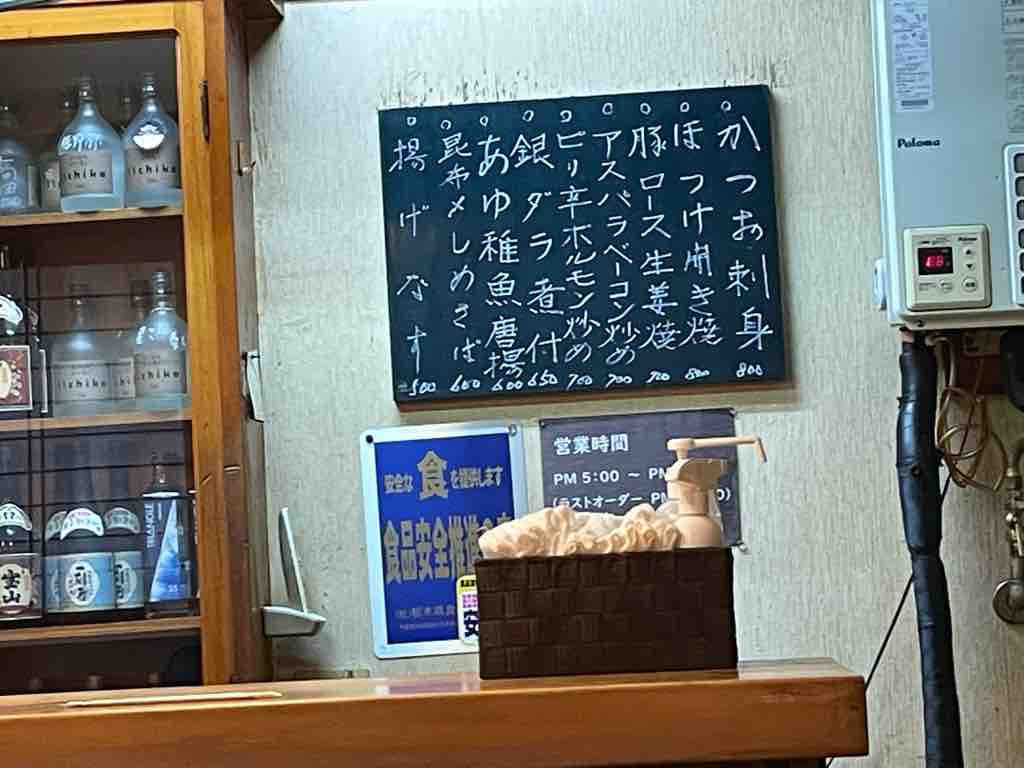 かつお刺身 800
ほっけ開き焼 800
豚ロース生姜焼 700
アスパラベーコン炒め 700
ピリ辛ホルモン炒め 700
銀ダラ煮付 650
あゆ稚魚唐揚 600
昆布〆しめさば 600
揚げなす 500
安全な食を提供します
食品安全推進
営業時間
PM 5:00 ～ PM
(ラストオーダー PM
Paloma
iichiko
iichiko
iichiko
iichiko
TRIANGLE
宝山